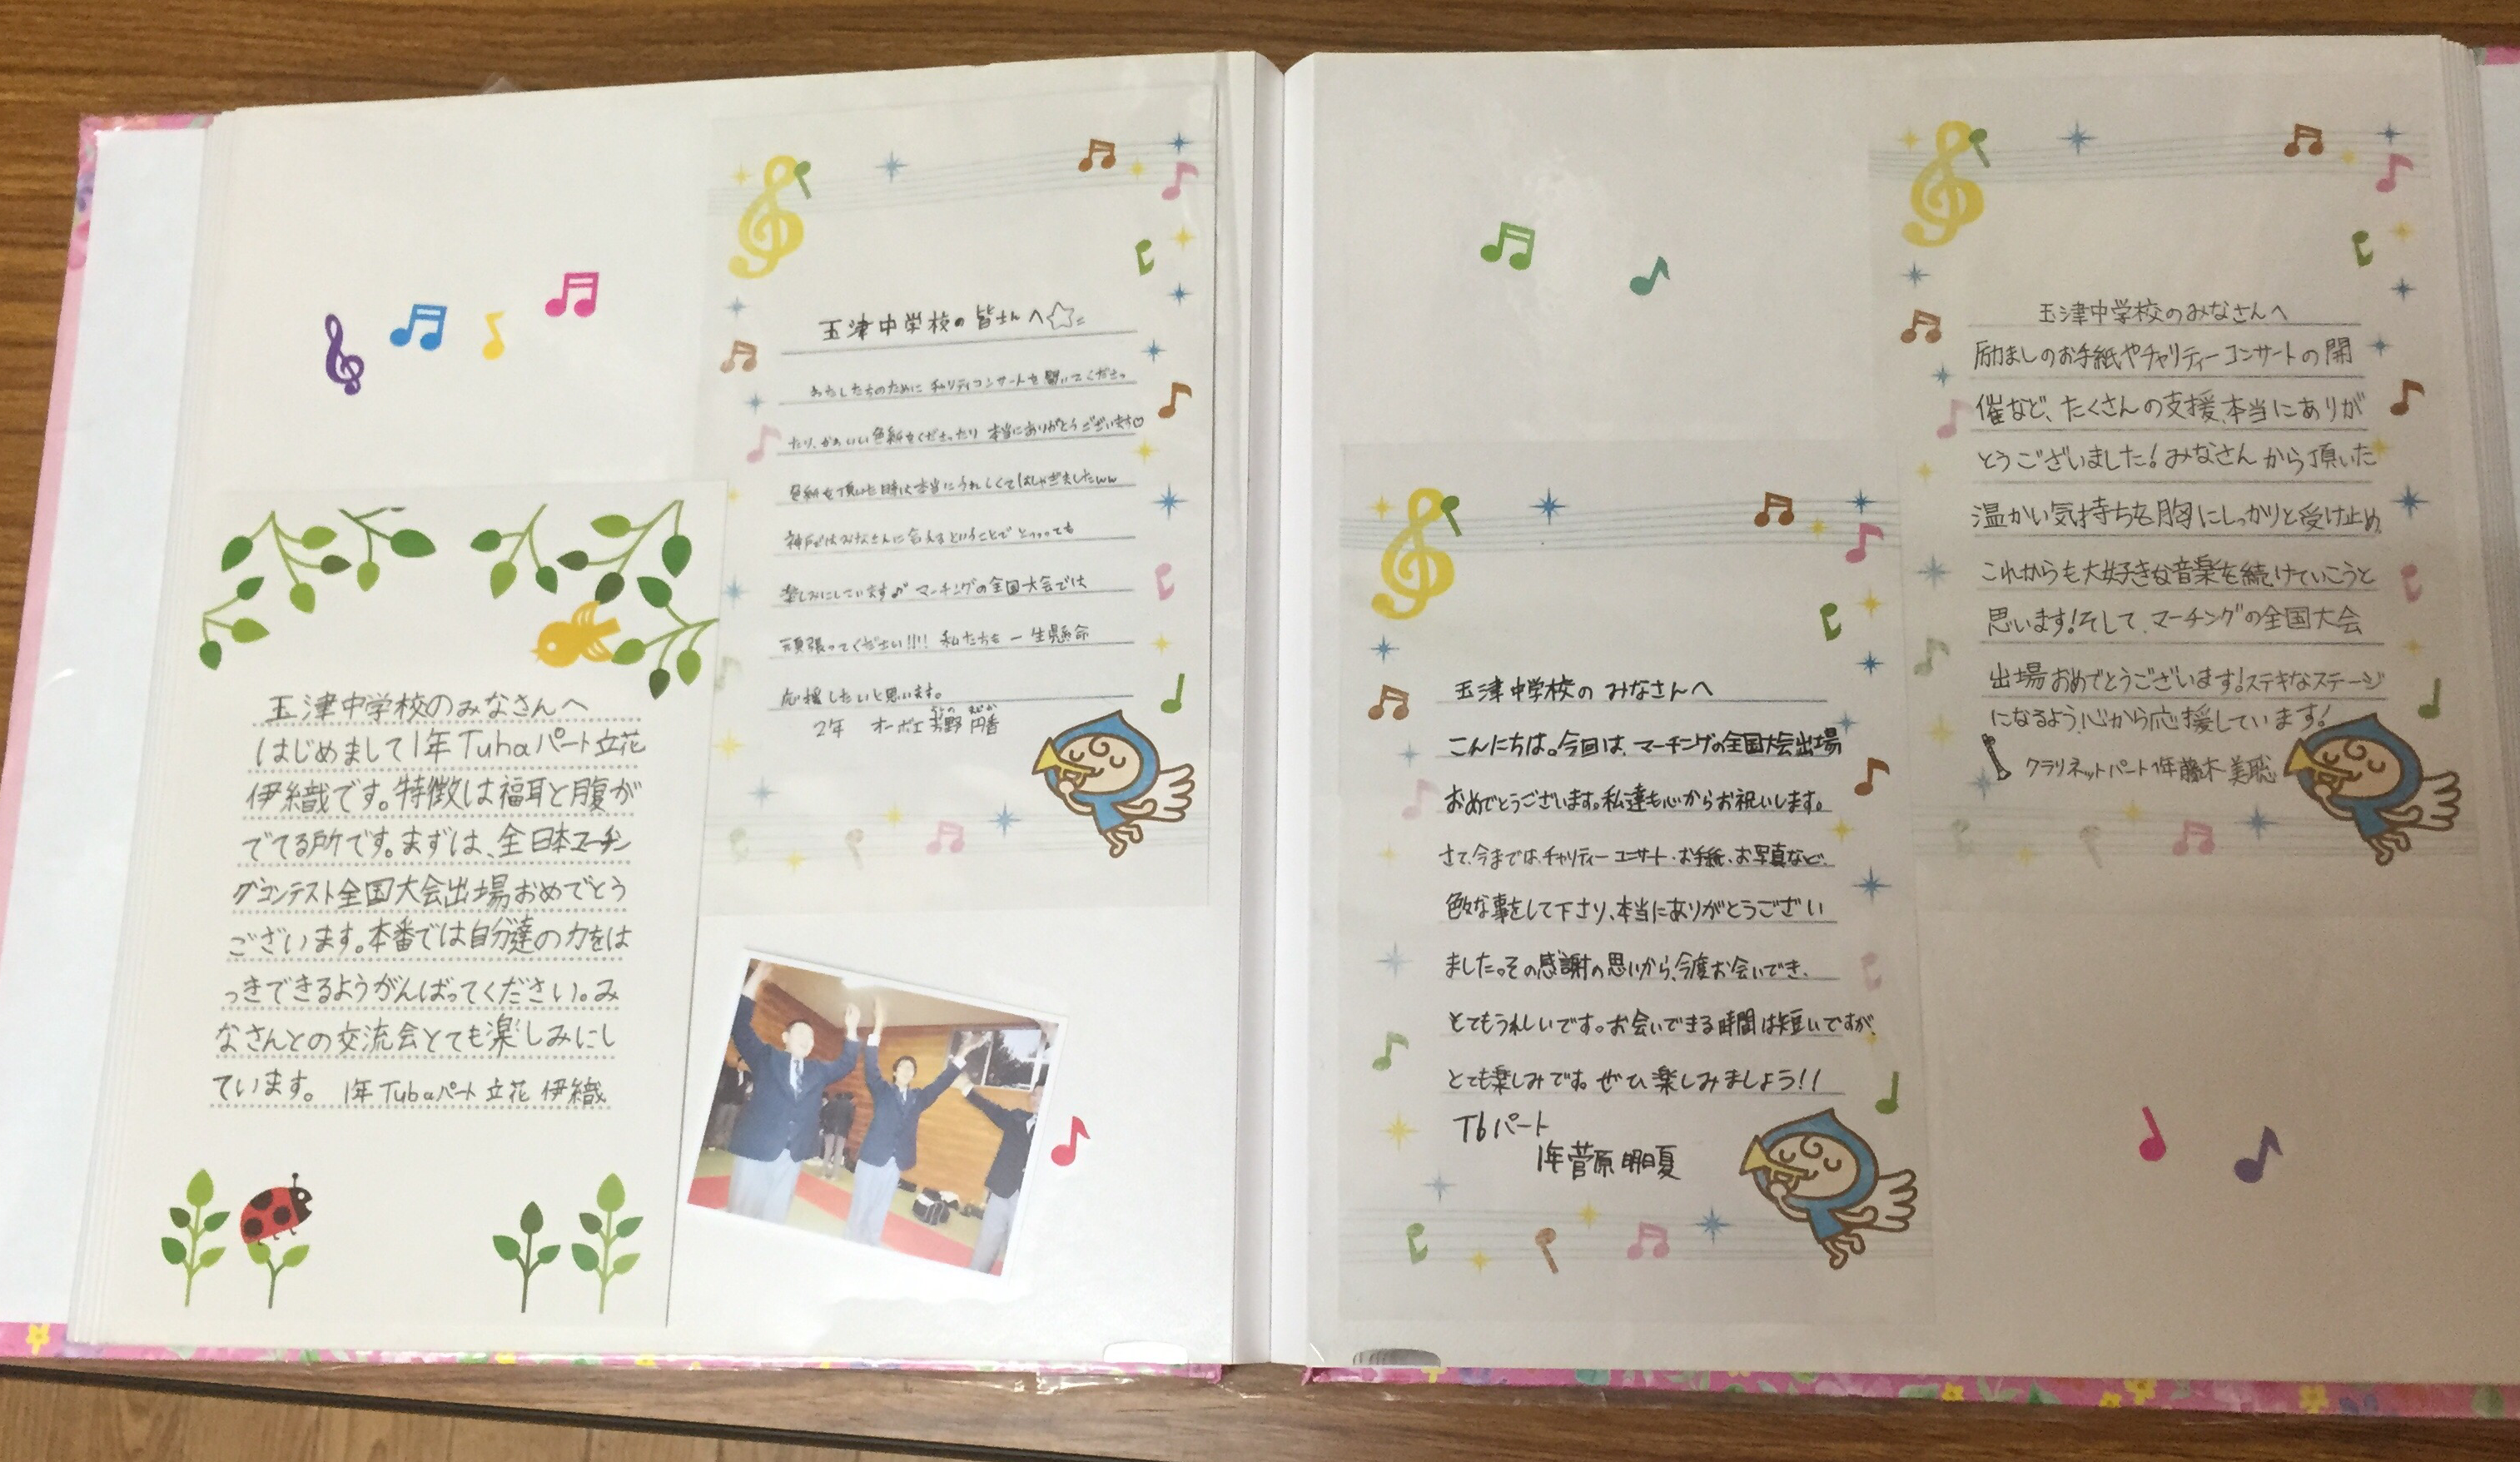 玉津中学校のみなさんへ
はじめまして1年Tubaパート立花
伊織です。特徴は福耳と腹が
でてる所です。まずは、全日本マーチン
グコンテスト全国大会出場おめでとう
ございます。本番では自分達の力をは
っきできるようがんばってください。み
なさんとの交流会とても楽しみにし
ています。 1年Tubaパート 立花 伊織
玉津中学校の皆さんへ☆
わたしたちのために チャリティコンサートを開いてくださっ
たり、かわいい色紙をくださったり 本当にありがとうございます♡
色紙を頂いた時は本当にうれしくてはしゃぎましたww
神戸ではみなさんに会えるということで とっっっても
楽しみにしています♪ マーチングの全国大会では
頑張ってください!!!! 私たちも 一生懸命
応援したいと思います。
2年 オーボエ 芳野 円香
玉津中学校の みなさんへ
こんにちは。今回は、マーチングの全国大会出場
おめでとうございます。私達も心からお祝いします。
さて、今までは、チャリティーコンサート、お手紙、お写真など、
色々な事をして下さり、本当にありがとうござい
ました。その感謝の思いから、今度お会いでき、
とてもうれしいです。お会いできる時間は短いですが、
とても楽しみです。ぜひ楽しみましょう!!
Tbパート
1年 菅原 明日夏
玉津中学校のみなさんへ
励ましのお手紙やチャリティーコンサートの開
催など、たくさんの支援、本当にありが
とうございました!みなさんから頂いた
温かい気持ちを胸にしっかりと受け止め
これからも大好きな音楽を続けていこうと
思います!そして、マーチングの全国大会
出場おめでとうございます!ステキなステージ
になるよう、心から応援しています!
クラリネットパート1年藤木美聡